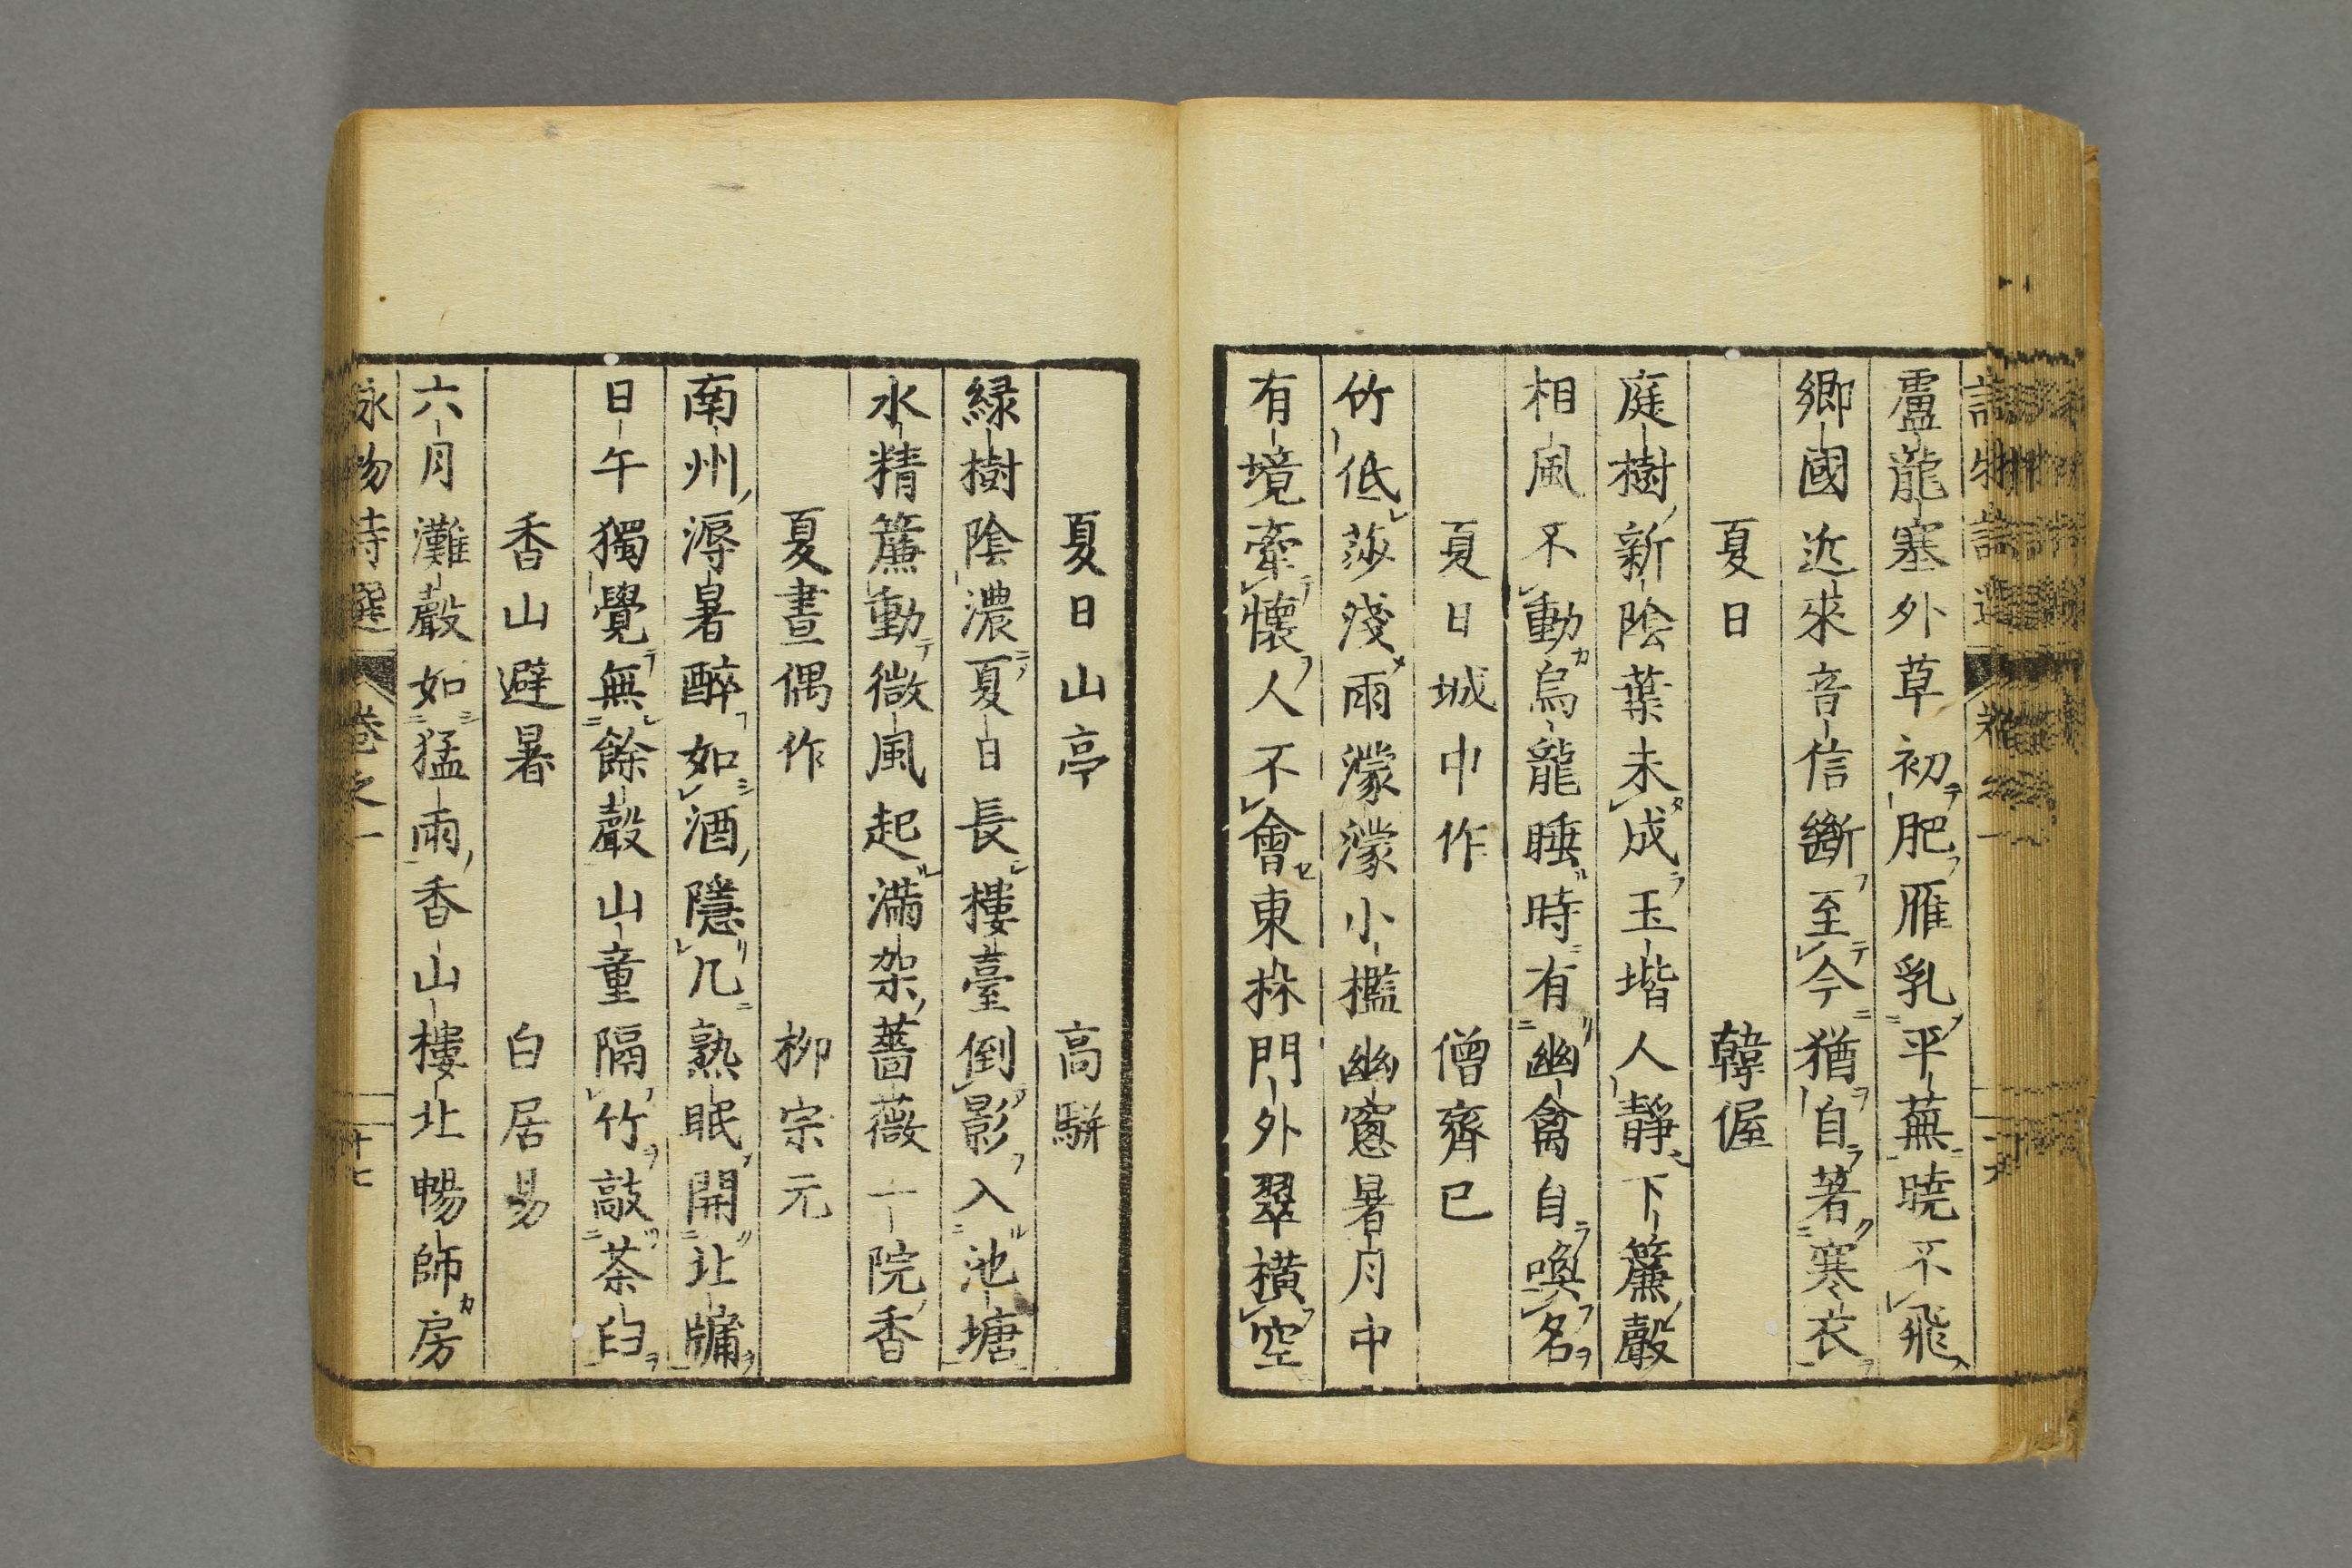 盧龍塞外草初肥雁乳平蕪暁不飛
鄉國近來音信斷至今猶自著寒衣
夏日 韓偓
庭樹新陰葉未成玉堦人靜下簾聲
相風不動烏龍睡時有幽禽自喚名
夏日城中作 僧齊已
竹低莎淺雨濛濛小檻幽窓暑月中
有境牽懷人不會東林門外翠橫空
夏日山亭 高駢
緑樹陰濃夏日長樓臺倒影入池塘
水精簾動微風起滿架薔薇一院香
夏晝偶作 柳宗元
南州溽暑醉如酒隱几熟眠開北牖
日午獨覺無餘聲山童隔竹敲茶臼
香山避暑 白居易
六月灘聲如猛雨香山樓北暢師房
詠物詩選 卷之一 十七